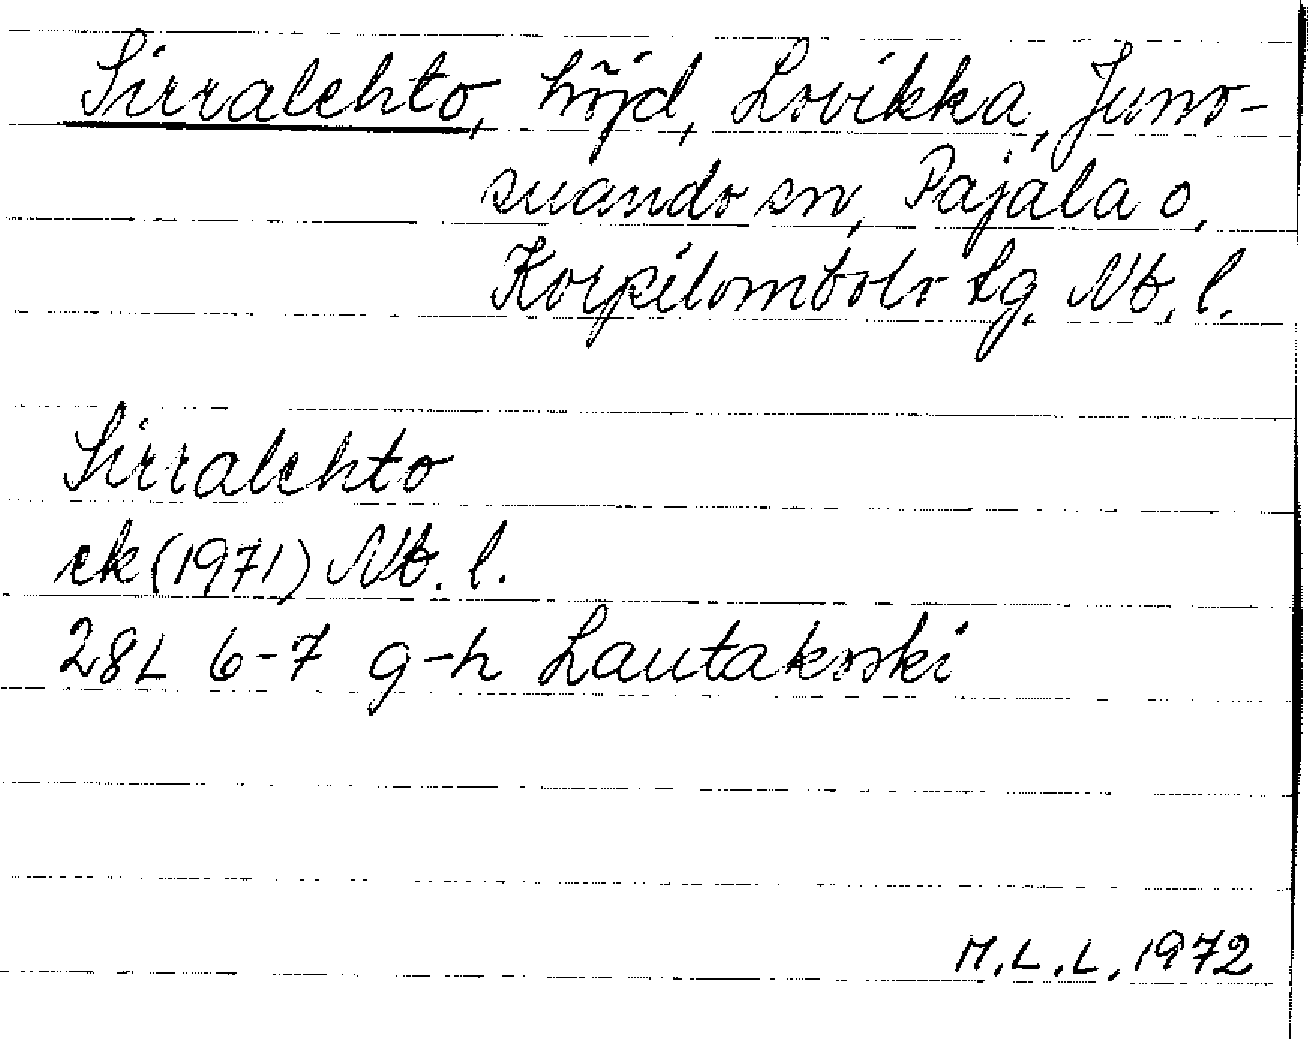 Sirralehto, höjd, Lovikka, Juno-
suando sn, Pajala o.
Korpilombolo tg. Nb. l.
Sirralehto
ek (1971) Nb. l.
28L 6-7 g-h Lautakoski
M.L.L. 1972